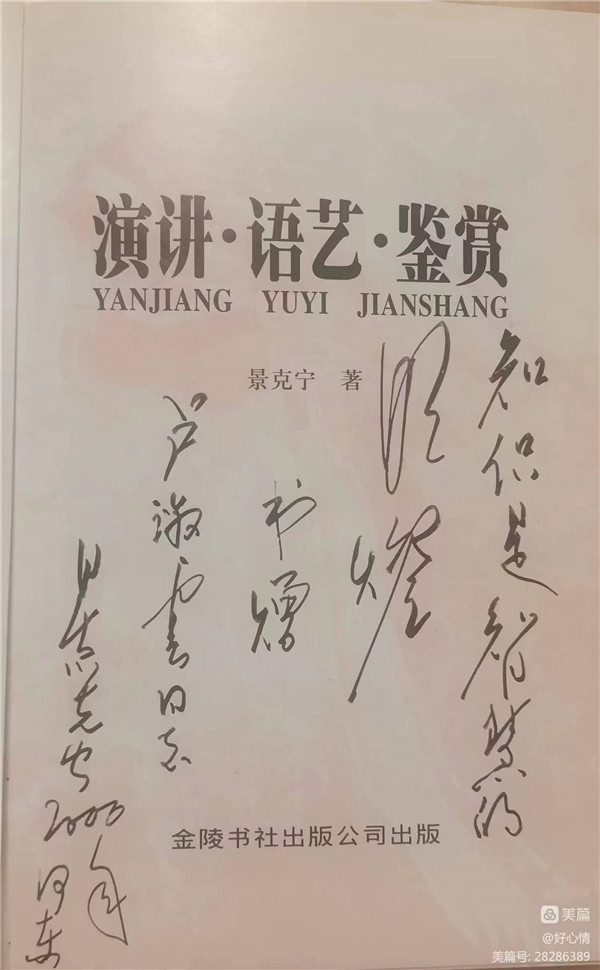 演讲·语艺·鉴赏
YANJIANG YUYI JIANSHANG
景克宁 著
知识是智慧的
明燈
书赠
卢淑雲同志
景克宁
2000年
河东
金陵书社出版公司出版
美篇
@好心情
美篇号: 28286389